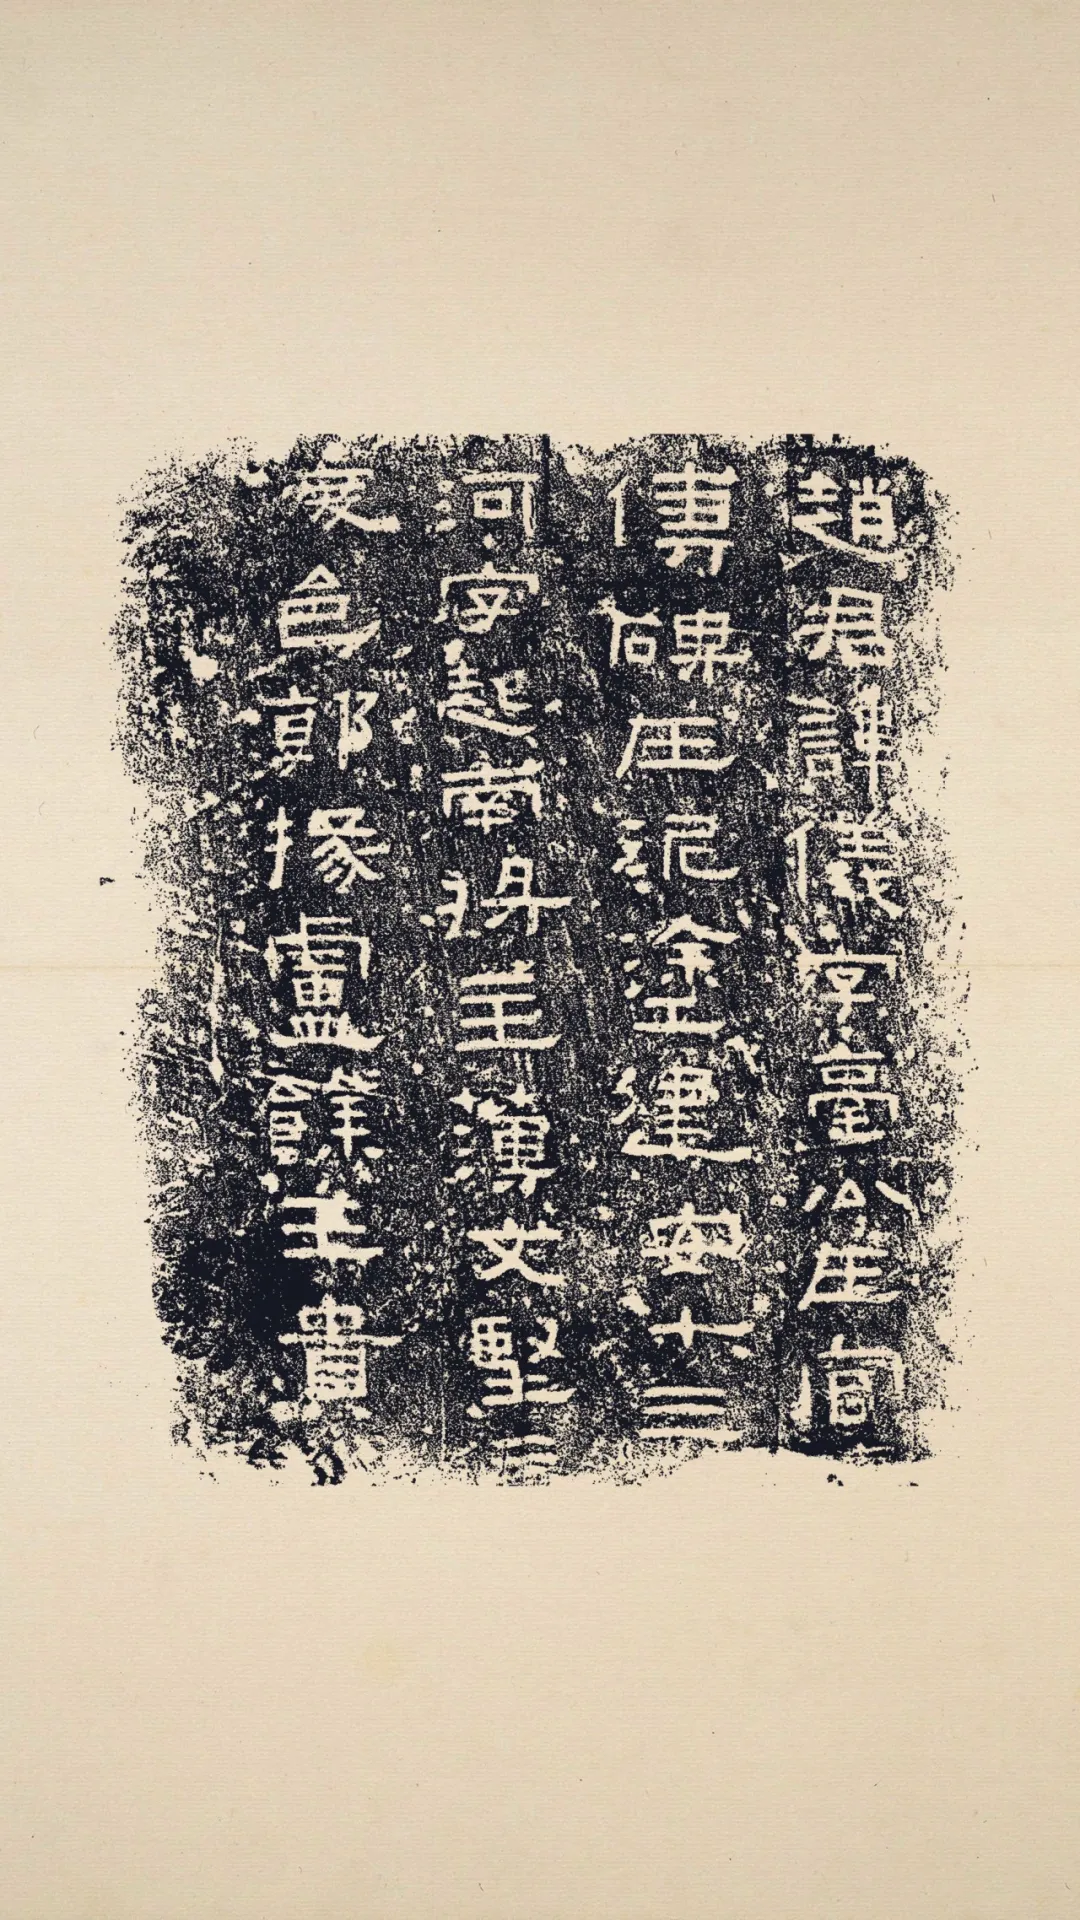 趙君諱儀字臺公在官
傳碑在泥塗建安十三
河字起南將主簿文堅
色郭掾盧餘王貴